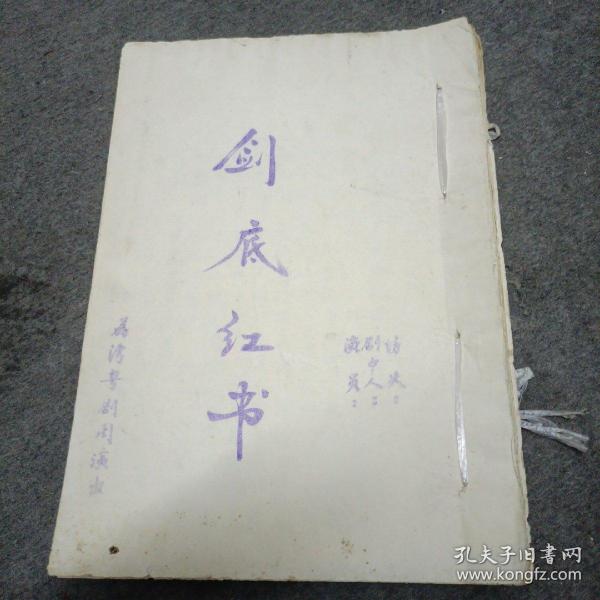 剑底红书
场次：
剧中人：
演员：
荔湾粤剧团演出
孔夫子旧书网
www.kongfz.com